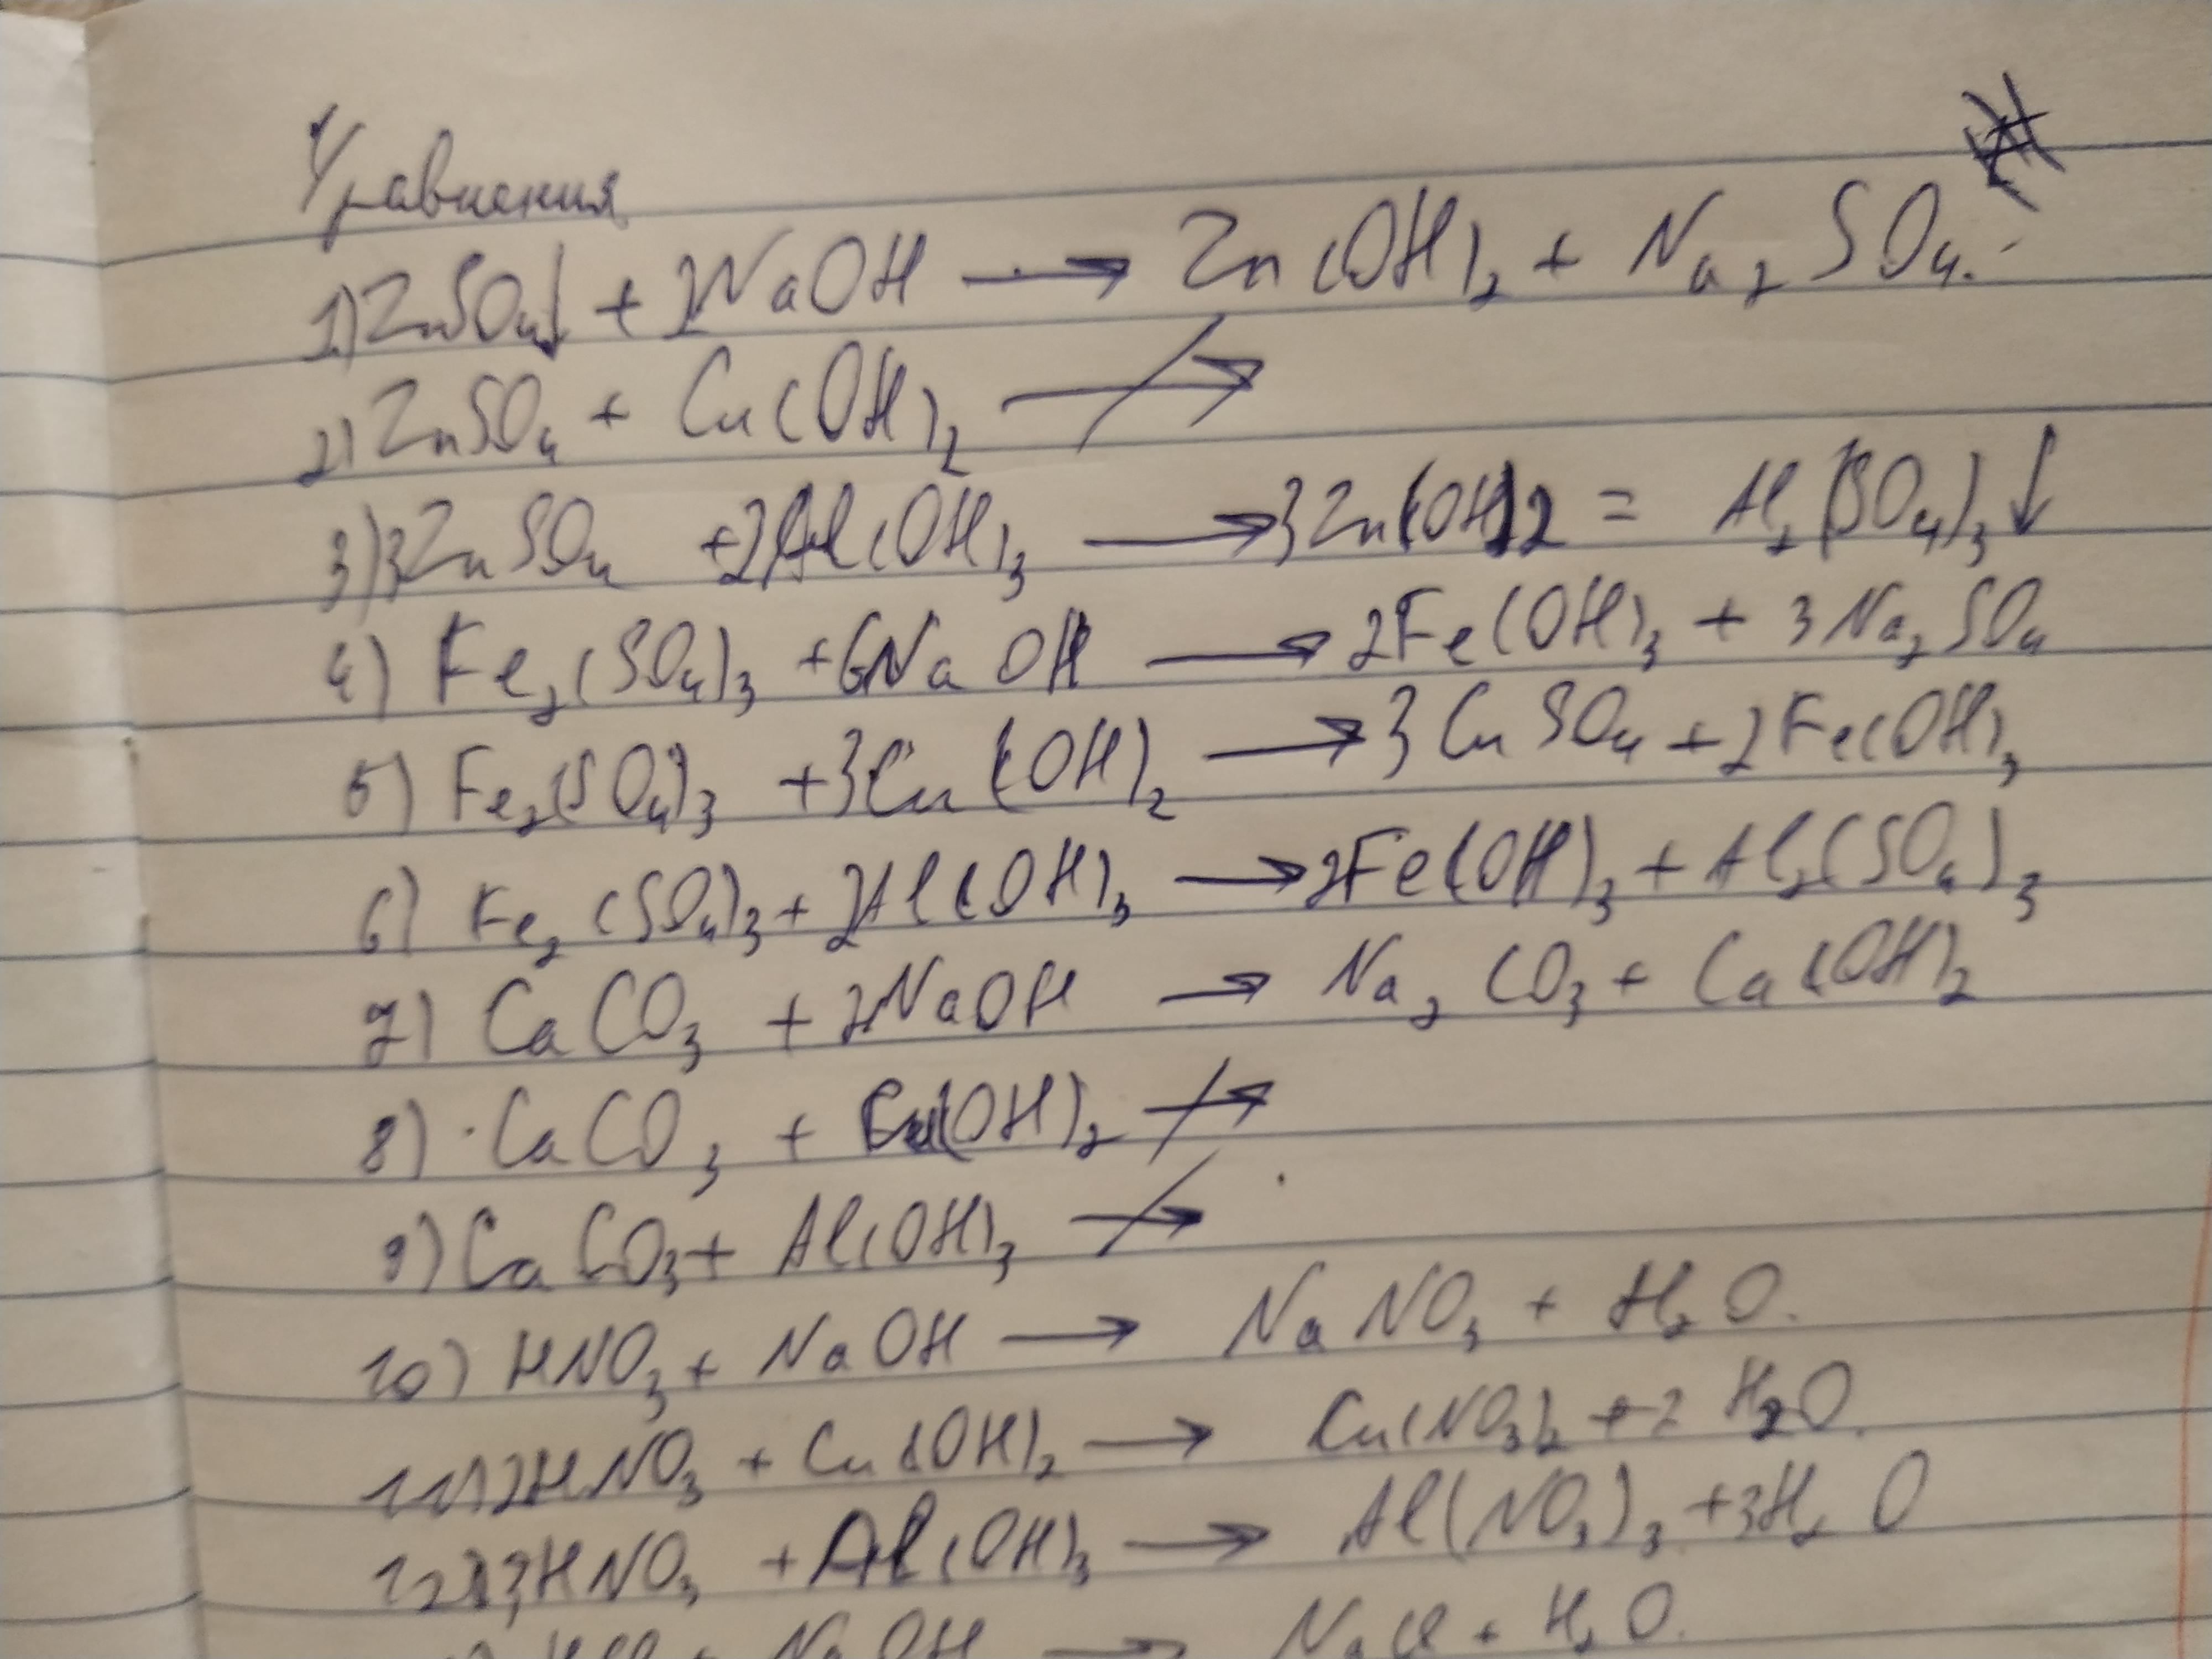 Уравнения
1) ZnSO₄↓ + 2NaOH → Zn(OH)₂ + Na₂SO₄.
2) ZnSO₄ + Cu(OH)₂ ↛
3) 3ZnSO₄ + 2Al(OH)₃ → 3Zn(OH)2 = Al₂(SO₄)₃↓
4) Fe₂(SO₄)₃ + 6NaOH → 2Fe(OH)₃ + 3Na₂SO₄
5) Fe₂(SO₄)₃ + 3Cu(OH)₂ → 3CuSO₄ + 2Fe(OH)₃
6) Fe₂(SO₄)₃ + 2Al(OH)₃ → 2Fe(OH)₃ + Al₂(SO₄)₃
7) CaCO₃ + 2NaOH → Na₂CO₃ + Ca(OH)₂
8) CaCO₃ + Cu(OH)₂ ↛
9) CaCO₃ + Al(OH)₃ ↛
10) HNO₃ + NaOH → NaNO₃ + H₂O.
11) 2HNO₃ + Cu(OH)₂ → Cu(NO₃)₂ + 2H₂O.
12) 3HNO₃ + Al(OH)₃ → Al(NO₃)₃ + 3H₂O
HCl + NaOH → NaCl + H₂O.